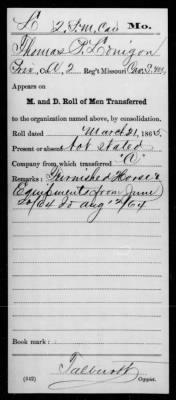 L 2 S. M. Cav Mo.
Thomas P. Lonigon
Priv., Co. A, 2 Reg't Missouri Cav. S. M.
Appears on
M. and D. Roll of Men Transferred
to the organization named above, by consolidation.
Roll dated March 21, 1865.
Present or absent Not Stated
Company from which transferred "C"
Remarks: Furnished Horse &
Equipments from June
20/64 to Aug 12/64
Book mark:
Talbrott
(842) Copyist.